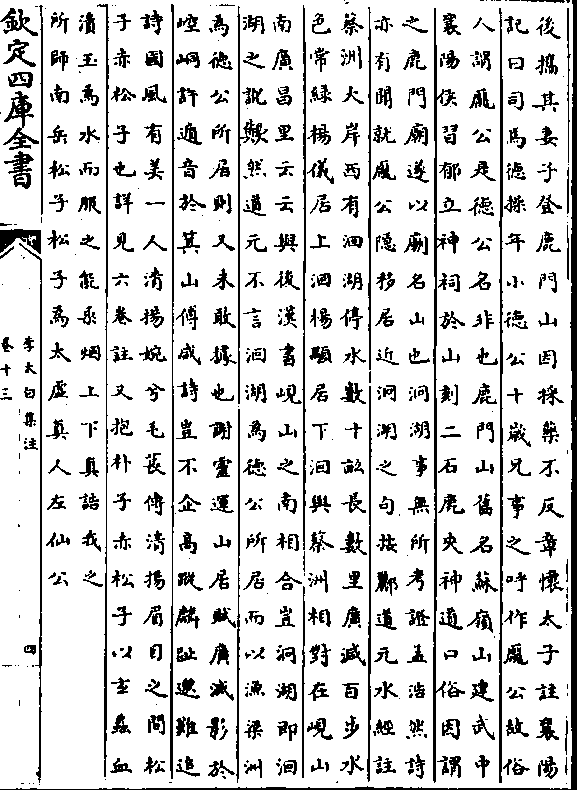 後攜其妻子登鹿門山因採藥不反章懷太子註襄陽
記曰司馬德操年小德公十歲兄事之呼作龐公故俗
人謂龐公是德公名非也鹿門山舊名蘇嶺山建武中
襄陽侯習郁立神祠於山刻二石鹿夾神道口俗因謂
之鹿門廟遂以廟名山也洄湖事無所考證孟浩然詩
亦有聞就龐公隱移居近洄湖之句按酈道元水經註
蔡洲大岸西有洄湖停水數十畝長數里廣減百步水
色常緑楊儀居上洄楊顒居下洄與蔡洲相對在峴山
南廣昌里云云與後漢書峴山之南相合豈洞湖即洄
湖之訛歟然道元不言洄湖為德公所居而以漁梁洲
為德公所居則又未敢據也謝靈運山居賦廣滅影於
崆峒許遁音於箕山傅咸詩豈不企高蹤麟趾邈難追
詩國風有美一人清揚婉兮毛萇傳清揚眉目之間松
子赤松子也詳見六卷註又抱朴子赤松子以玄蟲血
漬玉為水而服之能乘烟上下真誥我之
所師南岳松子松子為太虛真人左仙公
欽定四庫全書
李太白集注
卷十三
四